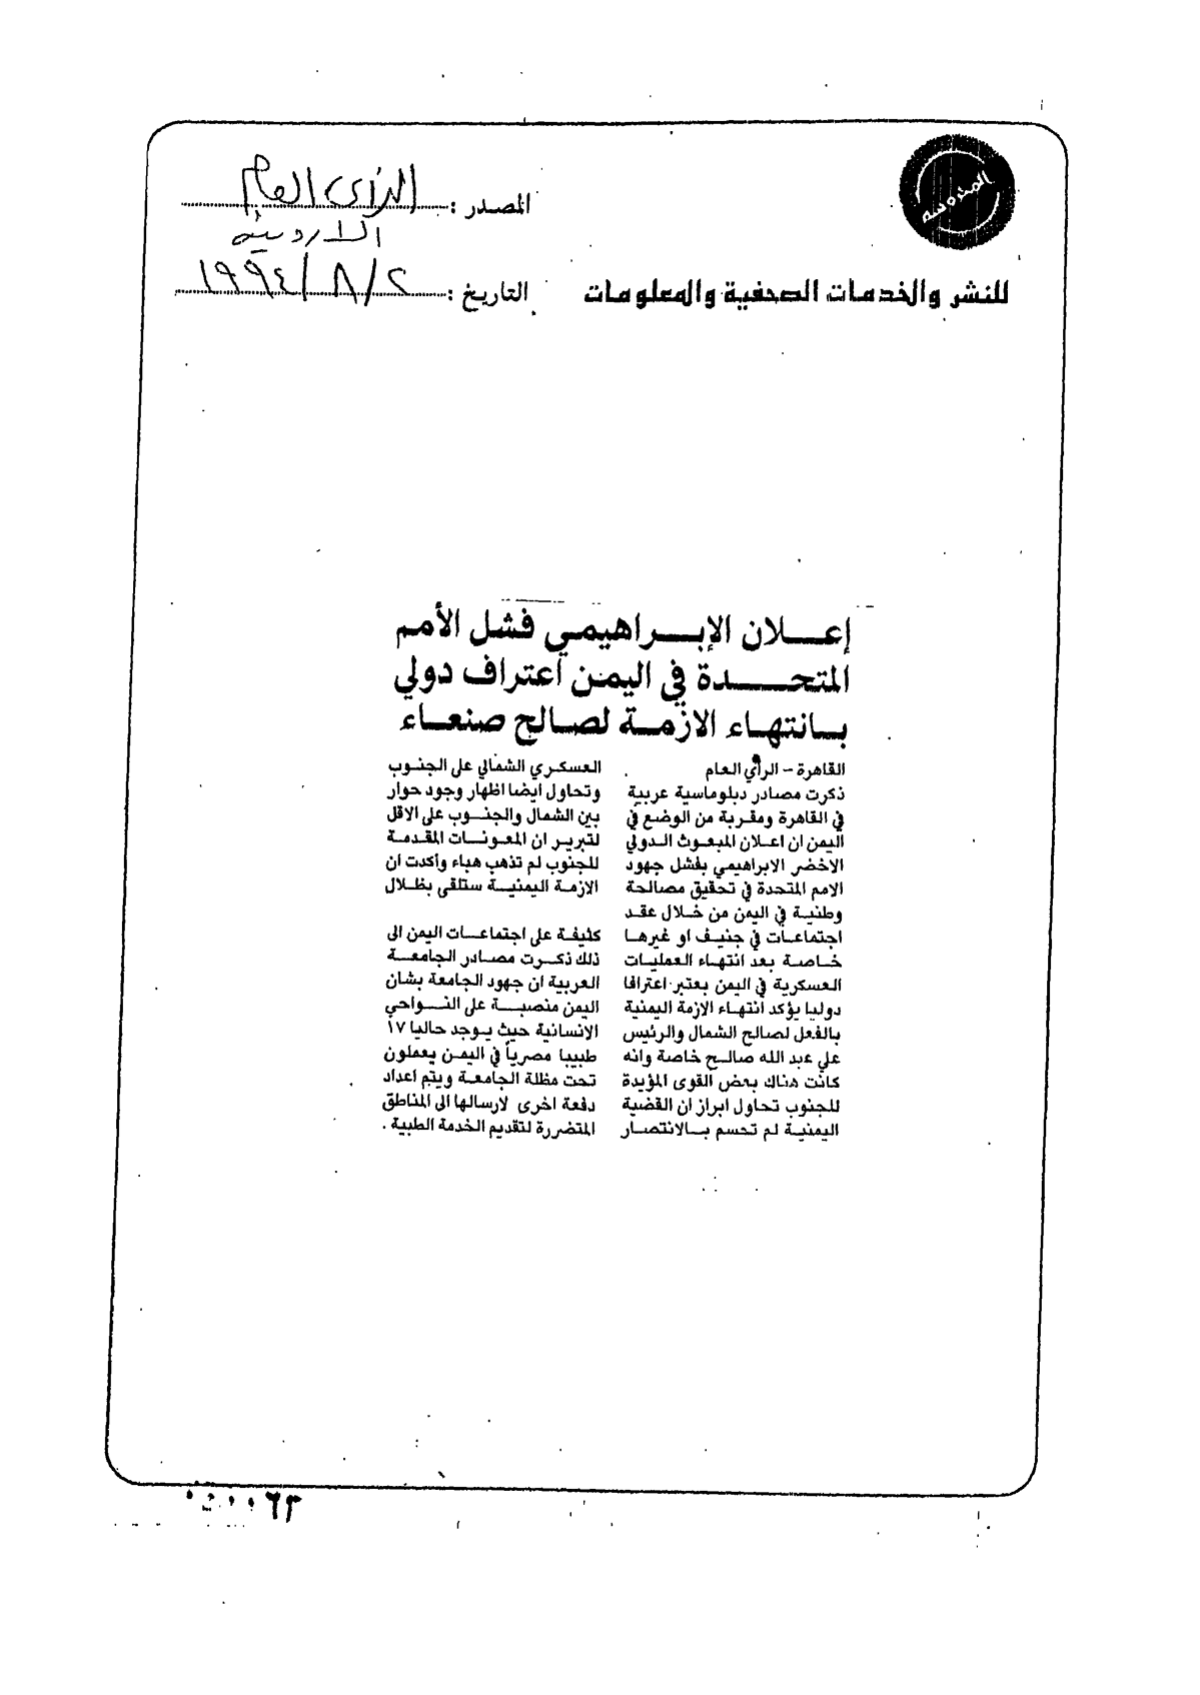 المصدر : الرأى العام
الاردنية
للنشر والخدمات الصحفية والمعلومات
التاريخ : ٢/٨/١٩٩٤
إعـــلان الإبـــراهيمي فشل الأمم
المتحـــــدة في اليمن اعتراف دولي
بـانتهـاء الازمـة لصـالح صنعـاء
القاهرة – الرأي العام
ذكرت مصادر دبلوماسية عربية
في القاهرة ومقربة من الوضع في
اليمن ان اعلان المبعوث الدولي
الاخضر الابراهيمي بفشل جهود
الامم المتحدة في تحقيق مصالحة
وطنية في اليمن من خلال عقد
اجتماعات في جنيف او غيرها
خاصة بعد انتهاء العمليات
العسكرية في اليمن يعتبر اعترافا
دوليا يؤكد انتهاء الازمة اليمنية
بالفعل لصالح الشمال والرئيس
علي عبد الله صالح خاصة وانه
كانت هناك بعض القوى المؤيدة
للجنوب تحاول ابراز ان القضية
اليمنية لم تحسم بـالانتصار
العسكري الشمالي على الجنوب
وتحاول ايضا اظهار وجود حوار
بين الشمال والجنوب على الاقل
لتبرير ان المعونات المقدمة
للجنوب لم تذهب هباء وأكدت ان
الازمة اليمنية ستلقي بظلال
كثيفة على اجتماعات اليمن الى
ذلك ذكرت مصادر الجامعة
العربية ان جهود الجامعة بشان
اليمن منصبة على النواحي
الانسانية حيث يوجد حاليا ١٧
طبيبا مصرياً في اليمن يعملون
تحت مظلة الجامعة ويتم اعداد
دفعة اخرى لارسالها الى المناطق
المتضررة لتقديم الخدمة الطبية .